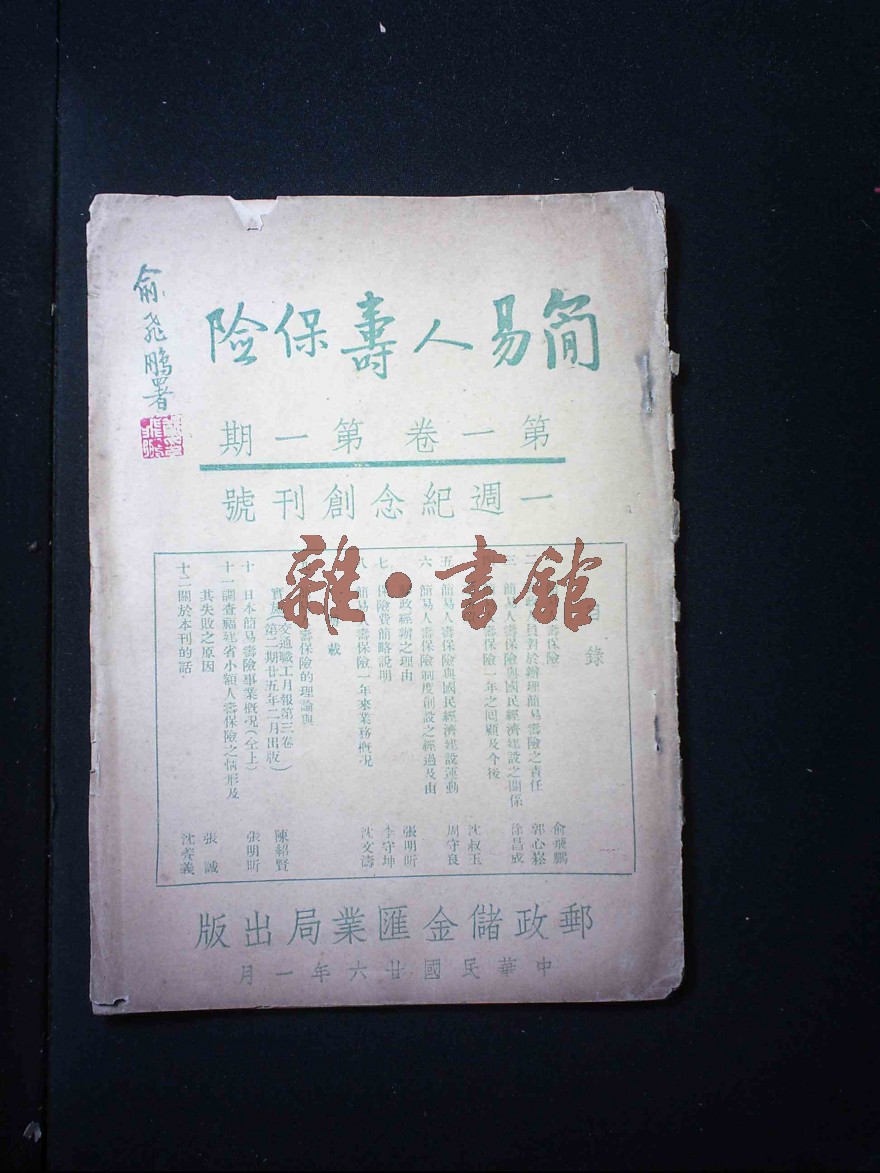 簡易人壽保險
俞飛鵬署
第一卷第一期
一週紀念創刊號
雜·書館
目錄
壽保險 俞飛鵬
員對於辦理簡易壽險之責任 郭心崧
三 簡易人壽保險與國民經濟建設之關係 徐昌成
壽保險一年之回顧及今後 沈叔玉
五 簡易人壽保險與國民經濟建設運動 周守良
六 簡易人壽保險制度創設之經過及由
郵政經辦之理由 張明昕
七 保險費簡略說明 李守坤
八 簡易人壽保險一年來業務概況 沈文濤
載
壽保險的理論與
實施(交通職工月報第三卷第二期廿五年二月出版) 陳紹賢
十 日本簡易壽險事業概況(仝上) 張明昕
十一 調查福建省小額人壽保險之情形及
其失敗之原因 張誠
十二 關於本刊的話 沈養義
郵政儲金匯業局出版
中華民國廿六年一月